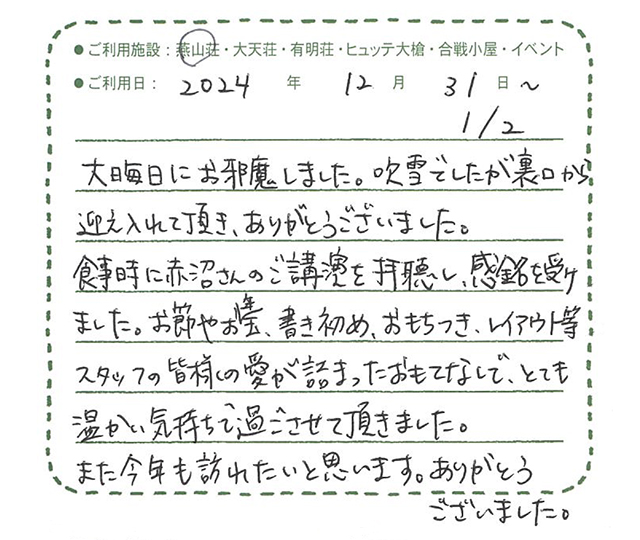 ●ご利用施設：燕山荘・大天荘・有明荘・ヒュッテ大槍・合戦小屋・イベント
●ご利用日：2024年12月31日～
1/2
大晦日にお邪魔しました。吹雪でしたが裏口から
迎え入れて頂き、ありがとうございました。
食事時に赤沼さんのご講演を拝聴し、感銘を受け
ました。お節やお年玉、書き初め、おもちつき、レイアウト等
スタッフの皆様の愛が詰まったおもてなしで、とても
温かい気持ちで過ごさせて頂きました。
また今年も訪れたいと思います。ありがとう
ございました。